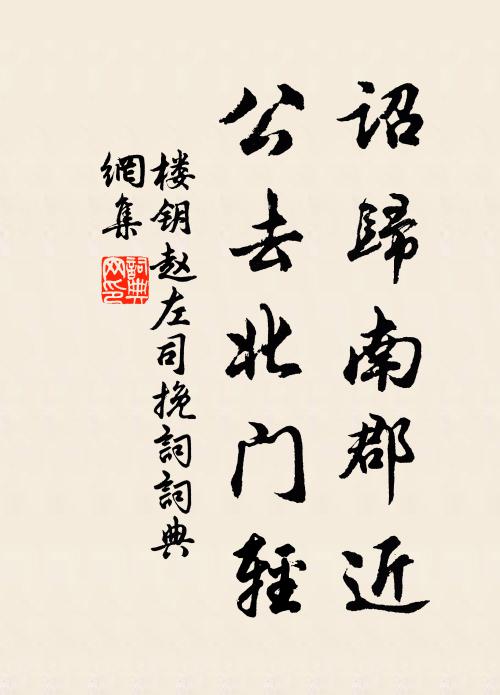 詔歸南郡近
公去北门輕
楼钥赵左司挽詞詞典
網集
詞典網印